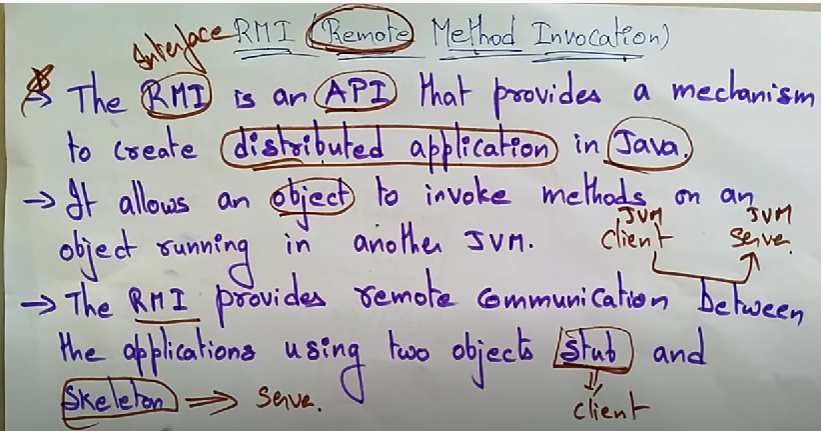 Interface RMI (Remote Method Invocation)
→ The RMI is an API that provides a mechanism
to create distributed application in Java.
→ It allows an object to invoke methods on an
JVM JVM
object running in another JVM. client Serve.
→ The RMI provides remote communication between
the applications using two objects stub and
Skeleton → Serve. client